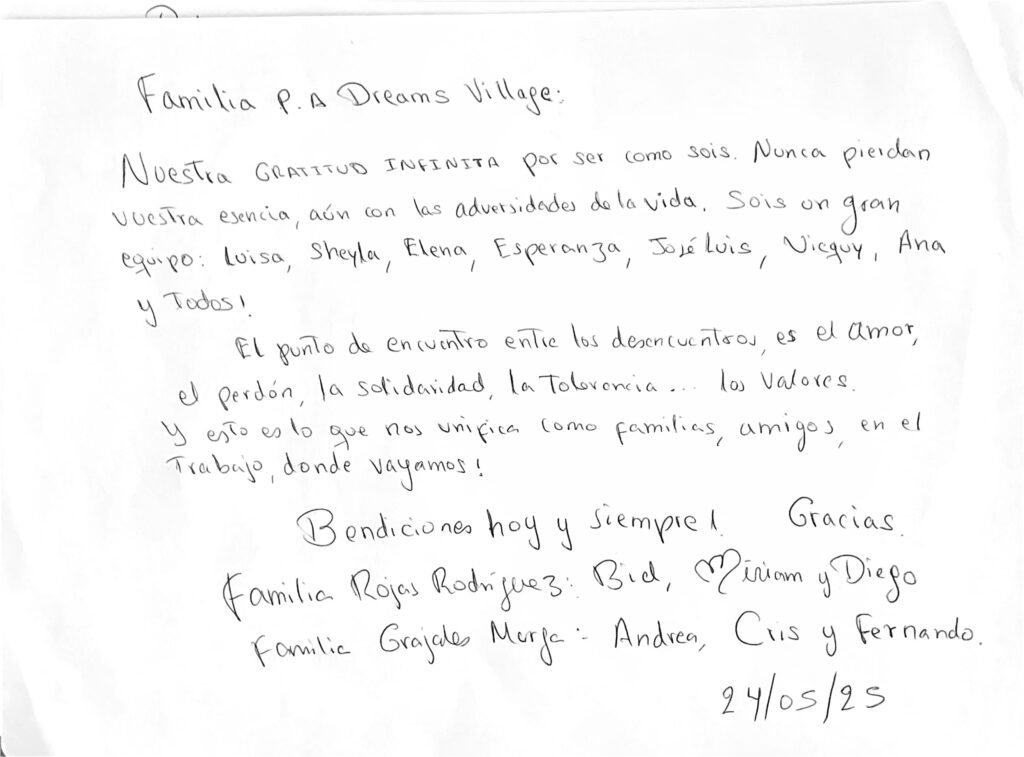 Familia P.A Dreams Village:
Nuestra GRATITUD INFINITA por ser como sois. Nunca pierdan
vuestra esencia, aún con las adversidades de la vida. Sois un gran
equipo: Luisa, Sheyla, Elena, Esperanza, José Luis, Vicquy, Ana
y Todos!
El punto de encuentro entre los desencuentros, es el amor,
el perdón, la solidaridad, la Tolerencia... los valores.
Y esto es lo que nos unifica como familias, amigos, en el
Trabajo, donde vayamos!
Bendiciones hoy y siempre! Gracias.
Familia Rojas Rodríguez: Biel, Míriam y Diego
Familia Grajales : Andrea, Cris y Fernando.
24/05/25